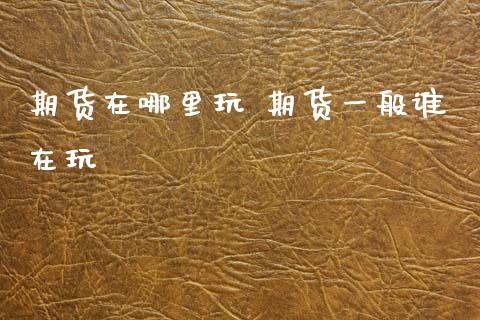 期货在哪里玩 期货一般谁
在玩